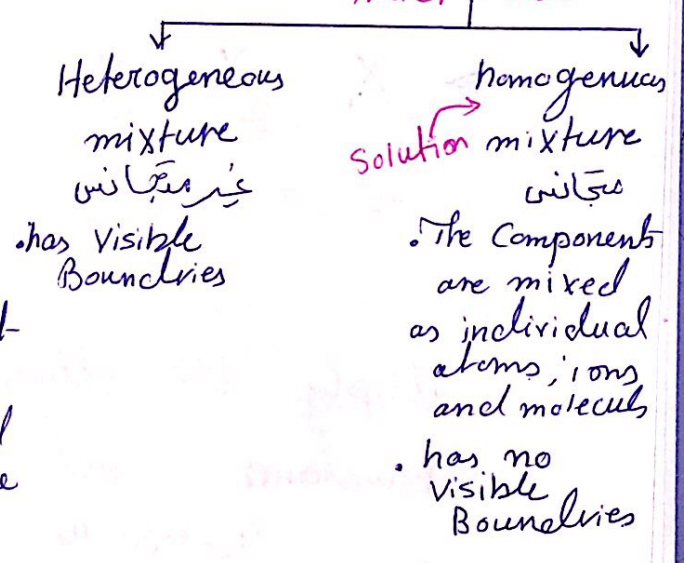 Heterogeneous
mixture
غير متجانس
.has Visible
Boundries
homogenuus
Solution
mixture
متجانس
.The Components
are mixed
as individual
atoms, ions
and moleculs
. has no
Visible
Boundries